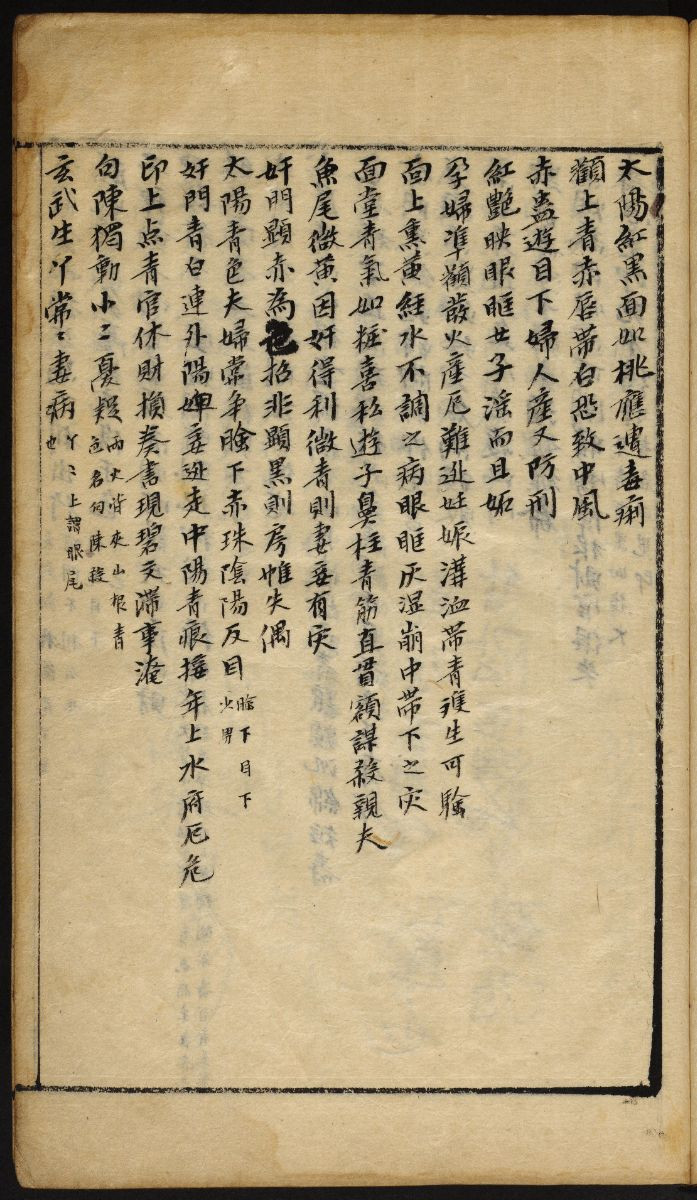 太陽紅黑面如桃應遭毒痢
顴上青赤唇帶白恐致中風
赤盎遊目下婦人產又防刑
紅艷映眼眶女子淫而且妬
孕婦準顴發火產厄難逃妊娠溝洫帶青難生可驗
面上熏黃經水不調之病眼眶灰湿崩中帶下之灾
面堂青氣如粧喜私遊子鼻柱青筋直貫額謀殺親夫
魚尾微黃因奸得利微青則妻妾有灾
奸門顯赤為色招非顯黑則房帷失偶
太陽青色夫婦常争瞼下赤珠陰陽反目瞼下目下少男
奸門青白連外陽婢妾逃走中陽青痕接年上水府厄危
印上点青官休財損奏書現碧文滯事淹
勾陳獨動小〻憂疑兩火背夾山根青色名勾陳發
玄武生丫常〻妻病丫〻上謂眼尾也